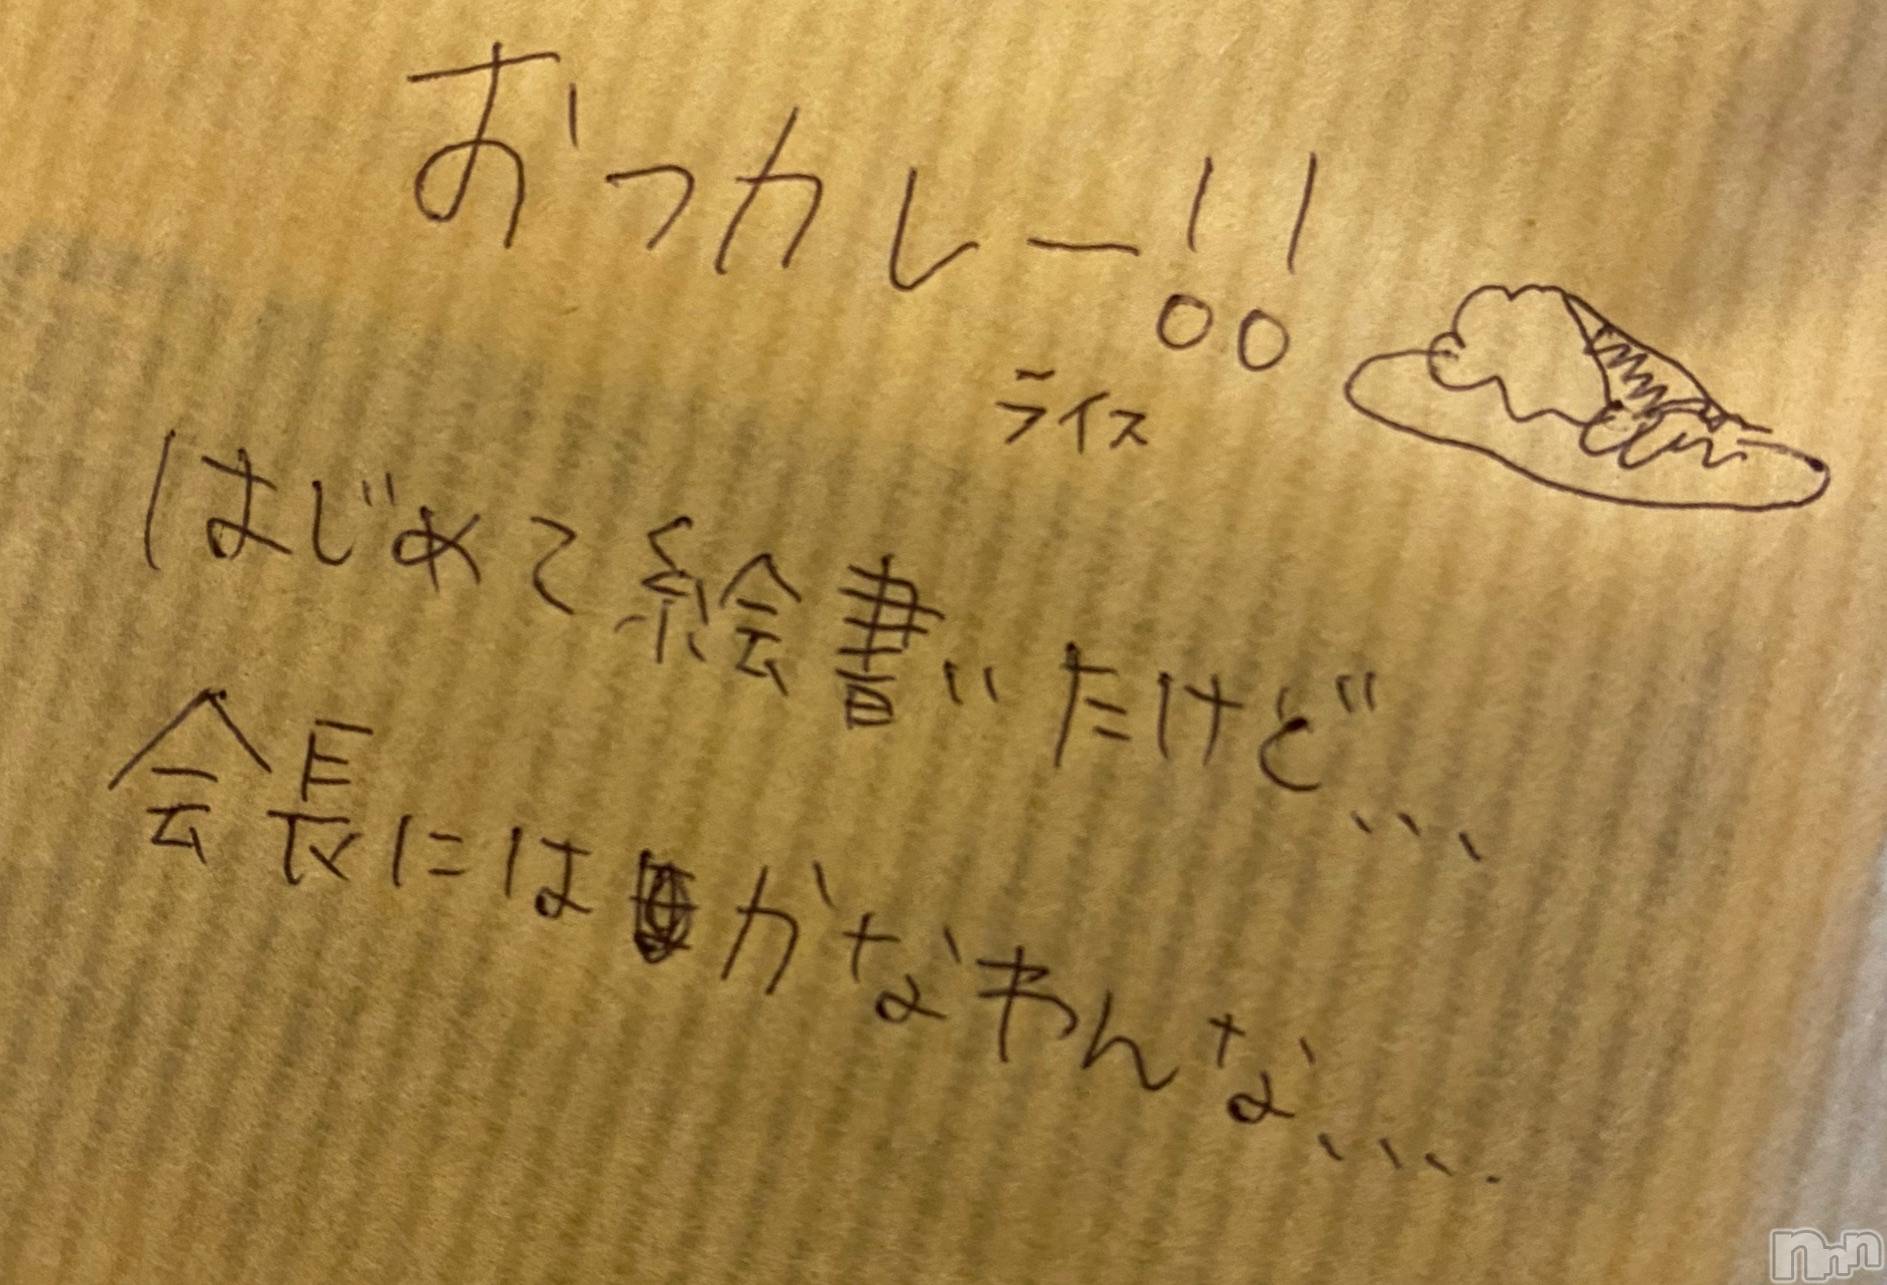 おつカレー!!
ライス
はじめて絵書いたけど...
会長にはかなわんな....
nnn